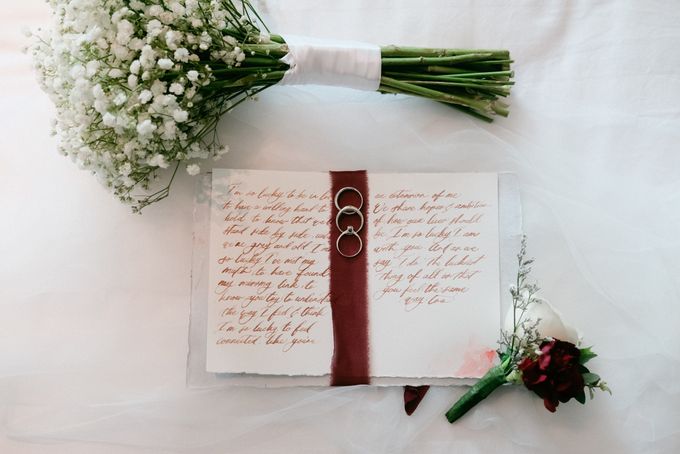 I'm so lucky to be in love
to have a willing hand to
hold to know that we'll
stand side by side
we're grey and old I'm
so lucky I've met my
match to have found
my missing link to
know you try to understand
the way I feel I think
I'm so lucky to feel
connected like you're
an extension of me
We share hopes & ambitions
of how our lives should
be I'm so lucky I am
with you And as we
say "I do" the luckiest
thing of all is that
you feel the same
way too